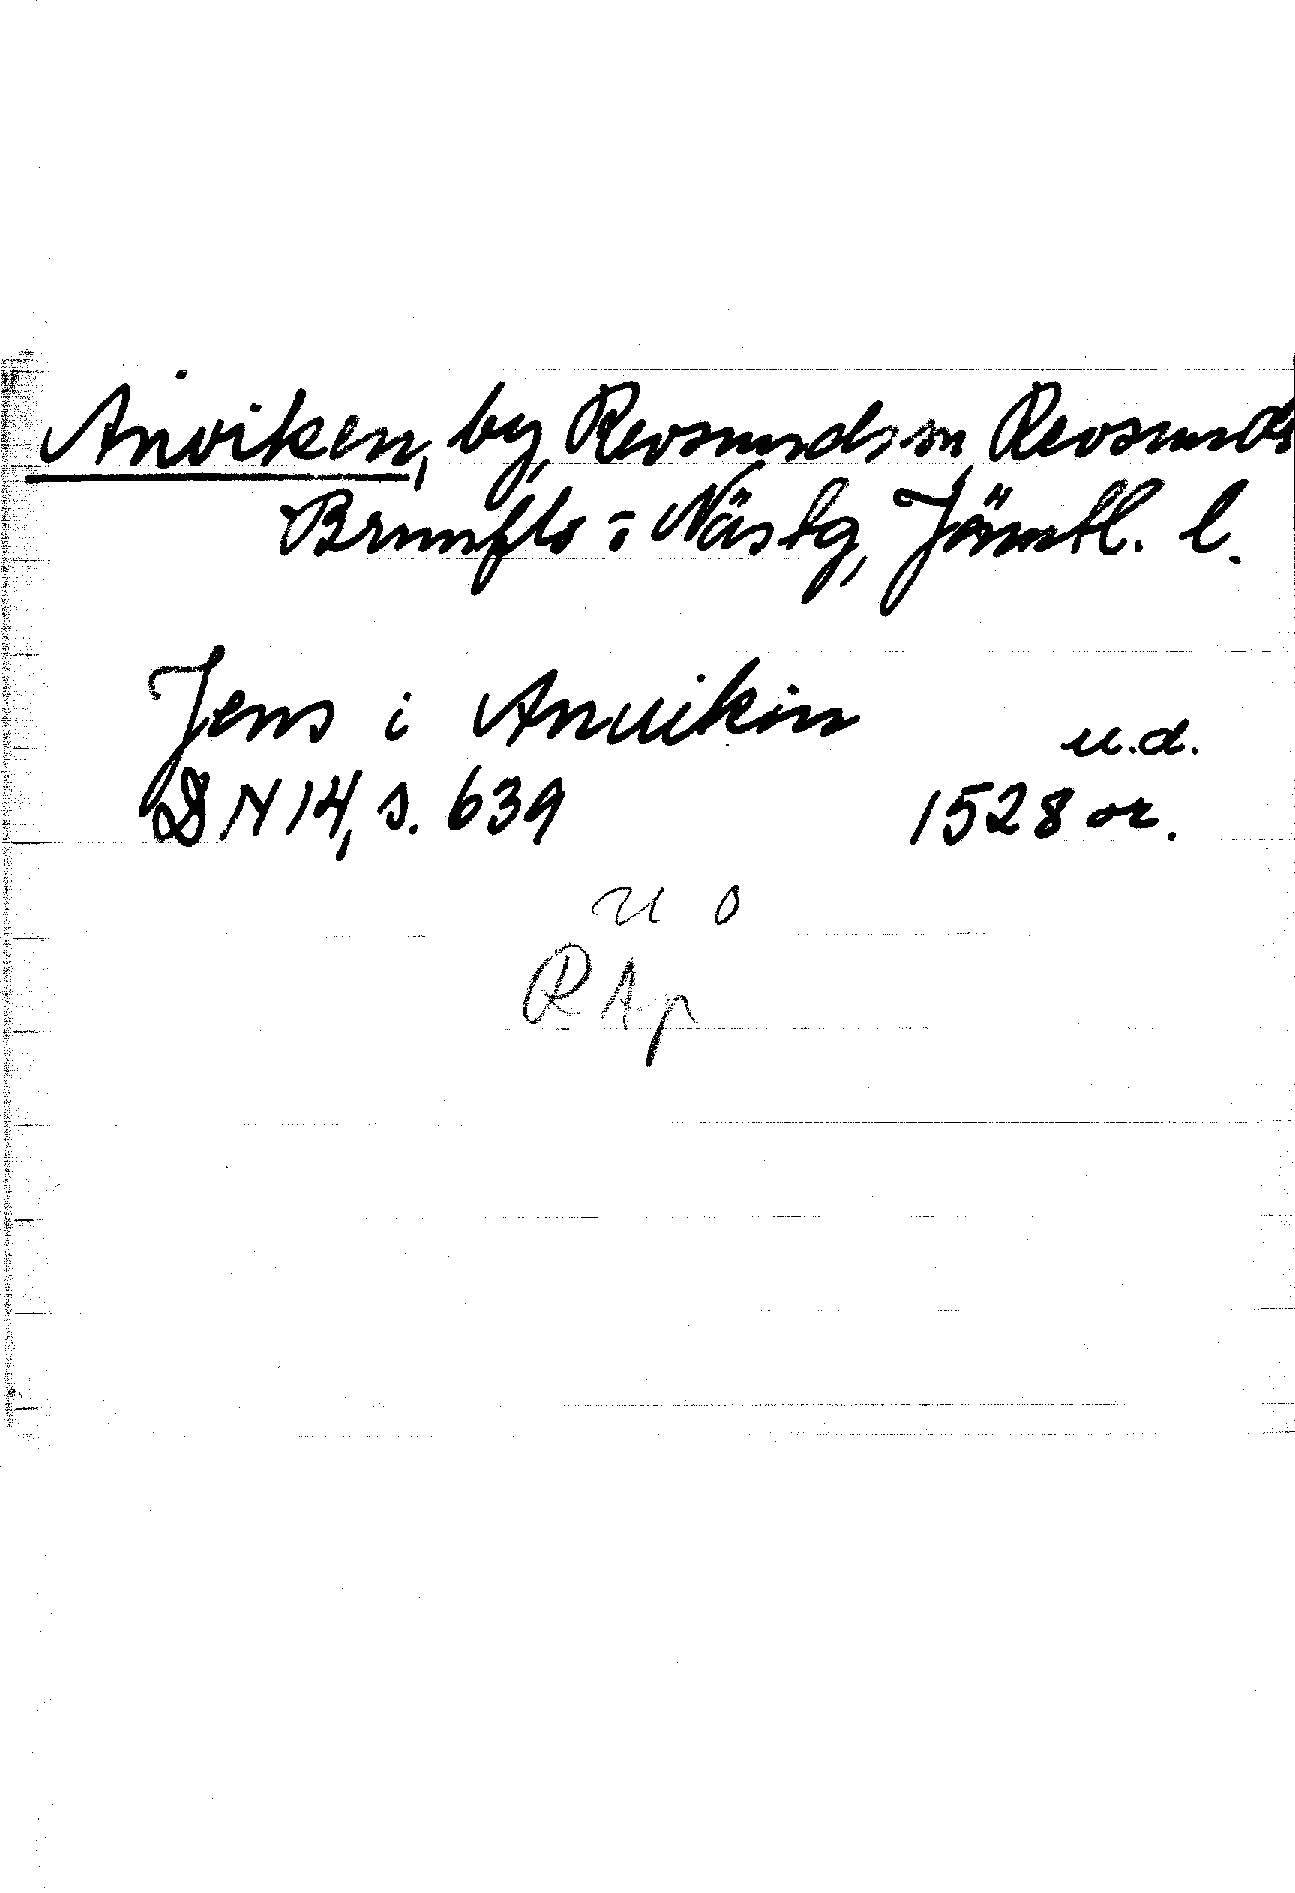 Anviken, by, Revsunds sn, Revsunds
Brunflo o Näs tg, Jämtl. l.
Jens i Anuikin u.d.
DN 14, s. 639 1528 or.
u o
RAp